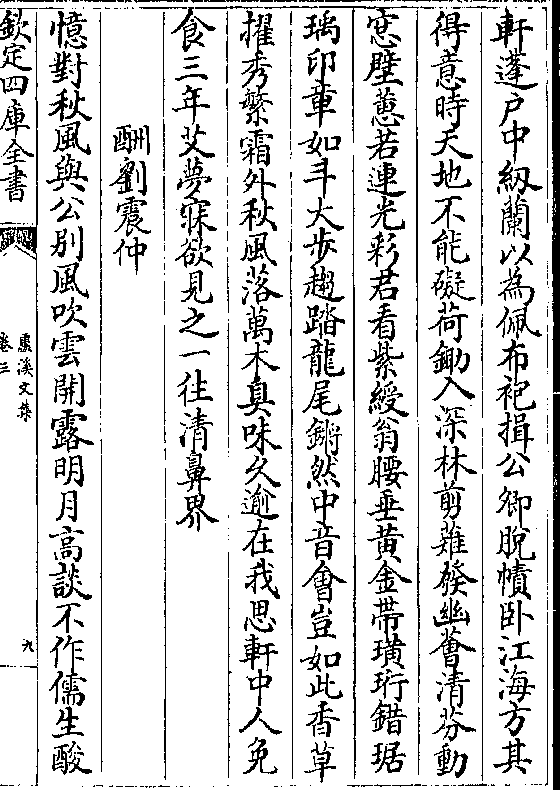 軒蓬户中紉蘭以為佩布袍揖公卿脫幘卧江海方其
得意時天地不能礙荷鋤入深林剪薙發幽薈清芬動
窓壁蔥若連光彩君看紫綬翁腰垂黄金帶璜珩錯琚
瑀印章如斗大步趨踏龍尾鏘然中音會豈如此香草
擢秀繁霜外秋風落萬木臭味久逾在我思軒中人免
食三年艾夢寐欲見之一往清鼻界
酬劉震仲
憶對秋風與公别風吹雲開露明月高談不作儒生酸
欽定四庫全書
盧溪文集
卷三
九